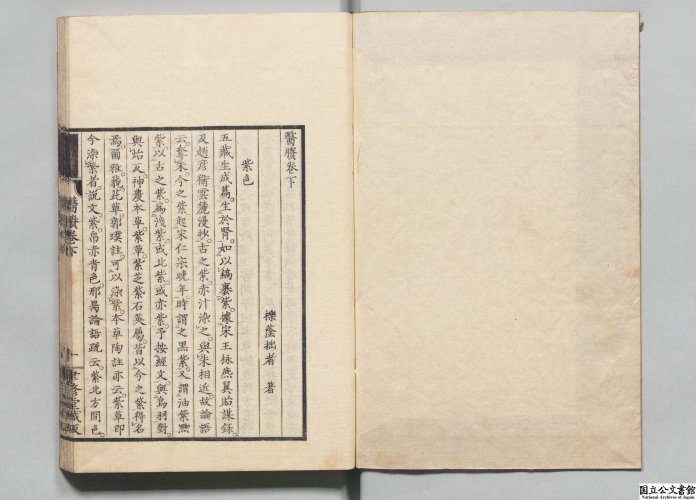 醫賸卷下
櫟蔭拙者 著
紫色
五藏生成篇。生於腎。如以縞裹紫。據宋王楙燕翼貽謀錄。
及趙彥衛雲麓漫抄。古之紫。赤汁染之。與朱相近。故論語
云。奪朱。今之紫。起宋仁宗晚年時。謂之黑紫。又謂油紫。然
紫以古之紫。為淺紫。或北紫。或赤紫。予按經文。與烏羽對
與炲反。神農本草。紫草。紫芝。紫石英屬。皆以今之紫得名
焉。爾雅。藐茈草。郭璞註。可以染紫。本草陶註亦云。紫草即
今染紫者。說文。紫。帛赤青色。邢昺論語疏云。紫北方間色。
醫賸卷下
聿脩堂藏版
国立公文書館
National Archives of Japan